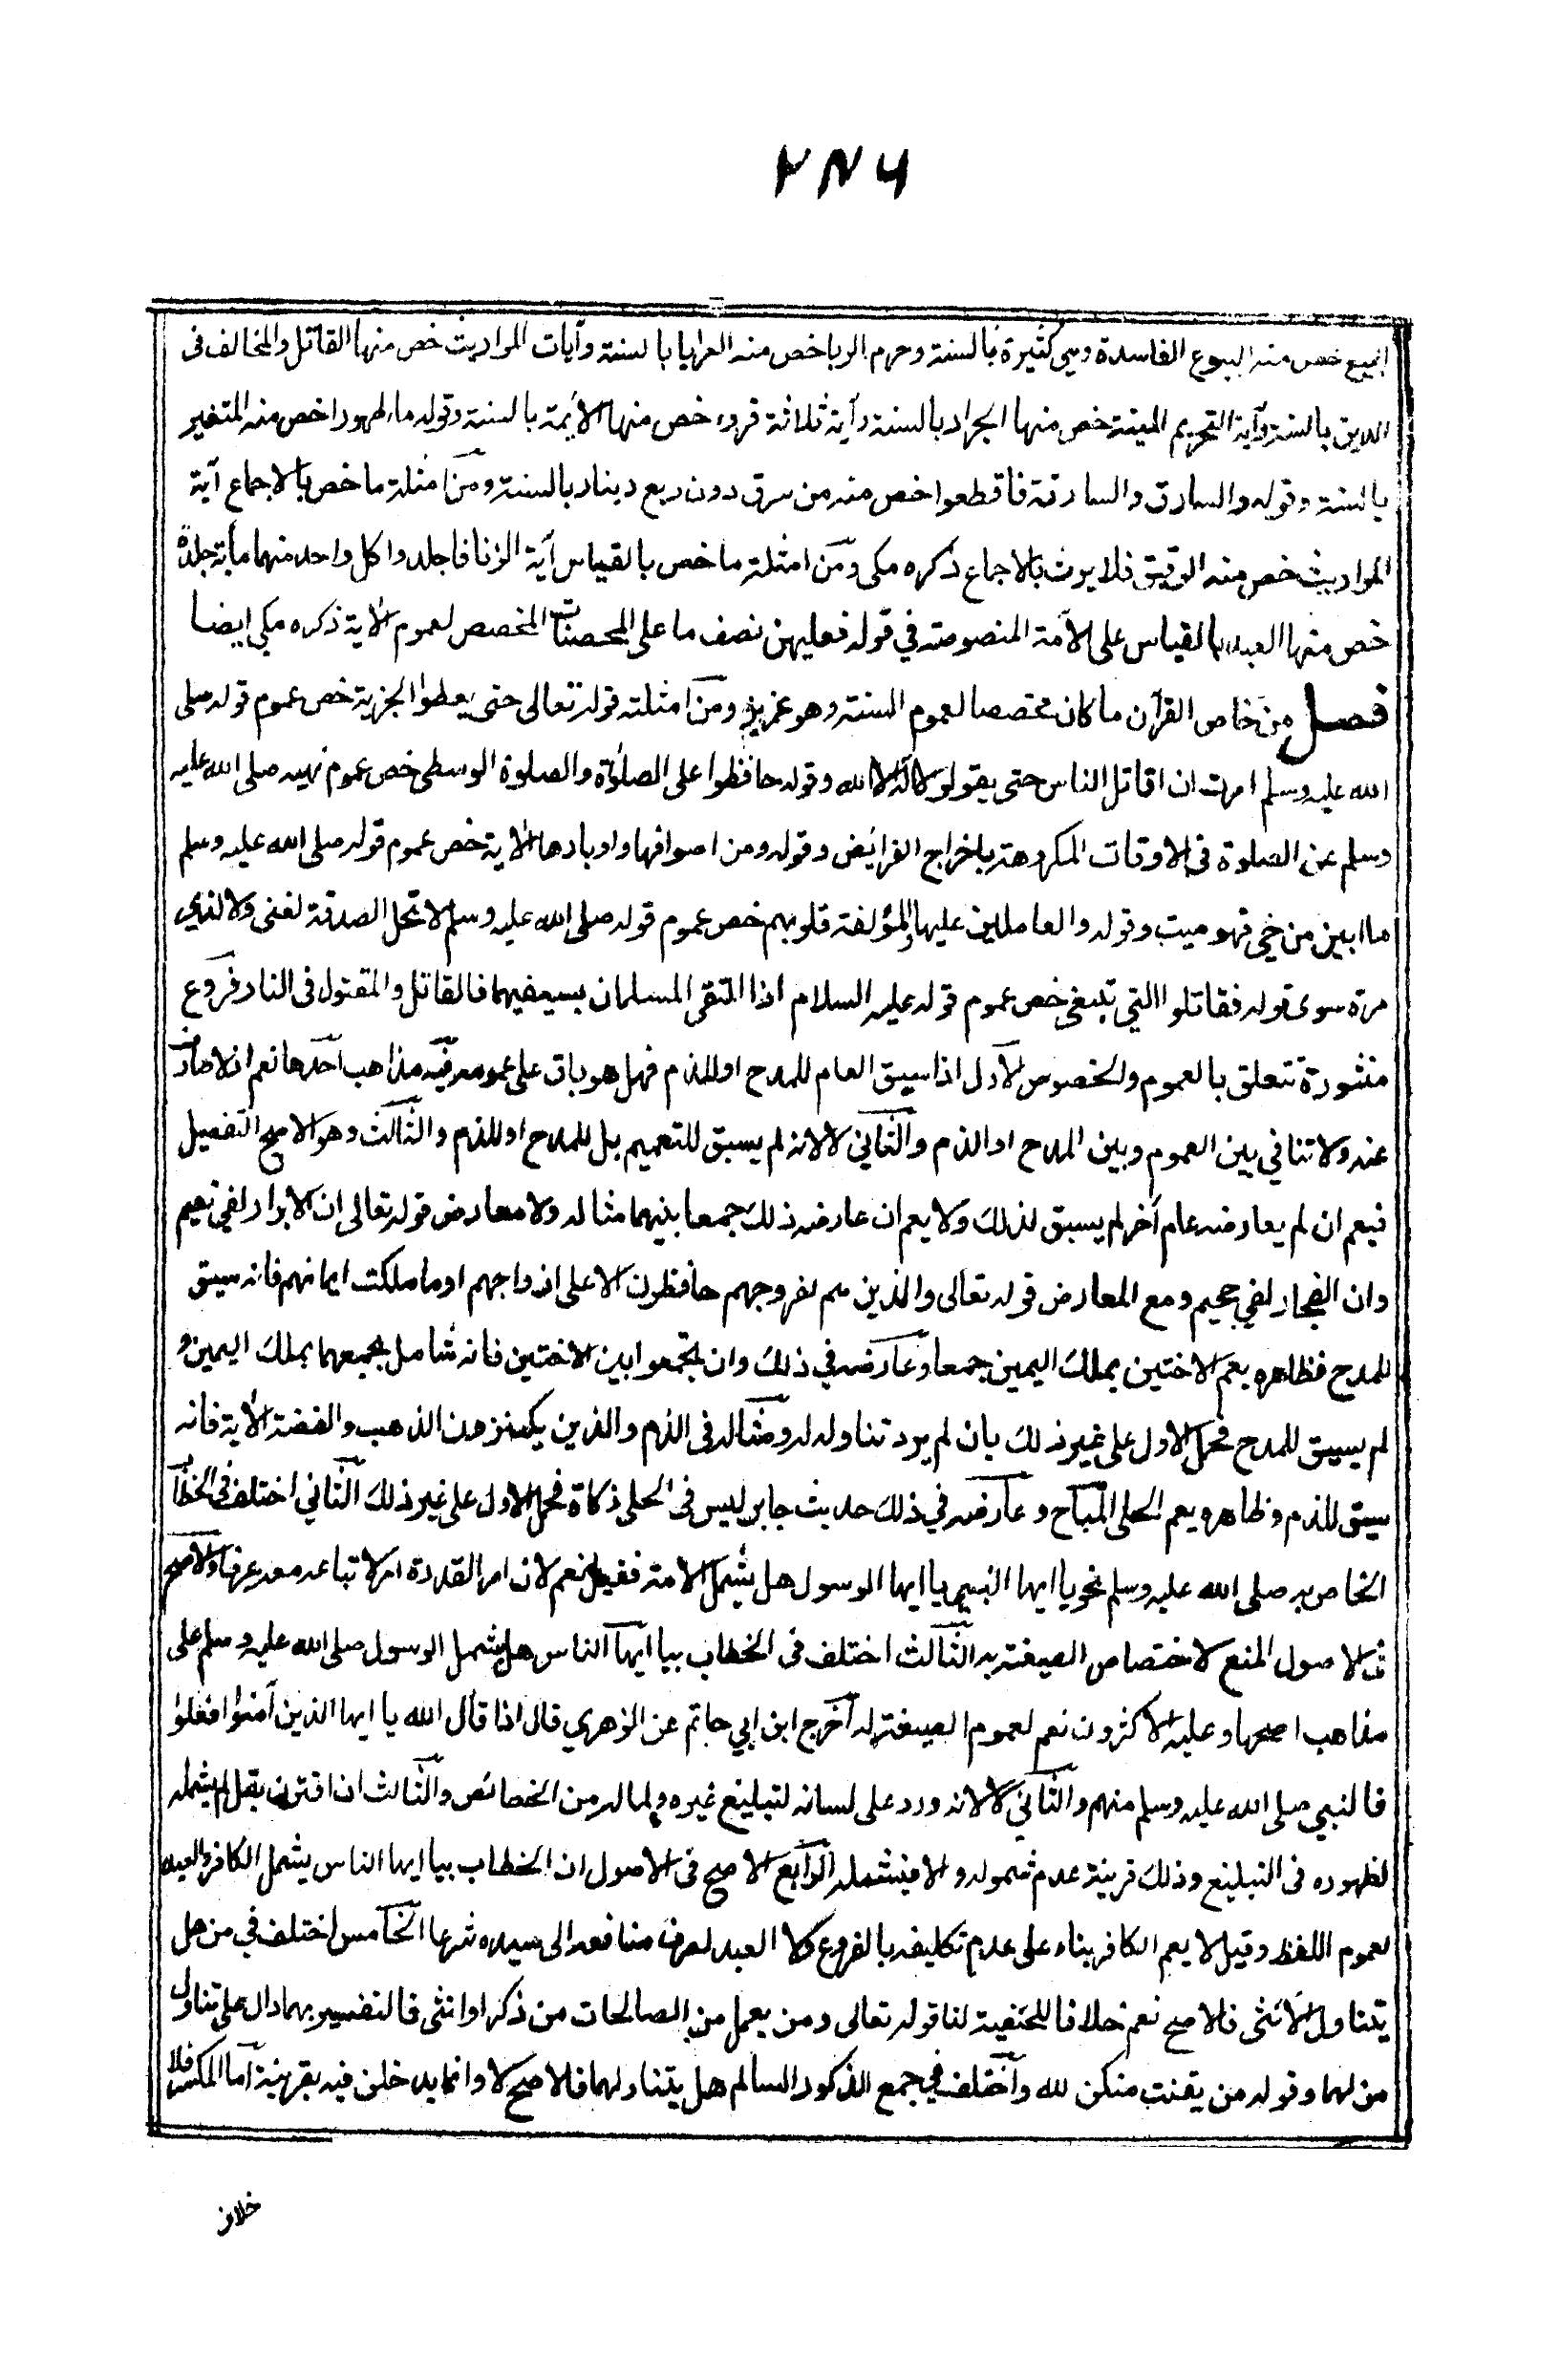 ٢٨٦
البيع خص منه البيوع الفاسدة وهي كثيرة بالسنة وحرم الربا خص منه العرايا بالسنة وآيات المواريث خص منها القاتل والمخالف فى
الدين بالسنة وآية التحريم الميتة خص منها الجراد بالسنة وآية ثلاثة قروء خص منها الائمة بالسنة وقوله ماء طهورا خص منه المتغير
بالسنة وقوله والسارق والسارقة فاقطعوا خص منه من سرق دون ربع دينار بالسنة ومن امثلة ما خص بالاجماع آية
المواريث خص منه الرقيق فلا يرث بالاجماع ذكره مكى ومن امثلة ما خص بالقياس آية الزنا فاجلدوا كل واحد منهما مأية جلدة
خص منها العبد بالقياس على الأمة المنصوصة في قوله فعليهن نصف ما على المحصنات المخصص لعموم الاية ذكره مكي ايضا
فصل من خاص القرآن ما كان مخصصا لعموم السنة وهو عزيز ومن امثلته قوله تعالى حتى يعطوا الجزية خص عموم قوله صلى
الله عليه وسلم امرت ان اقاتل الناس حتى يقولوا لا اله الا الله وقوله حافظوا على الصلوٰة والصلوة الوسطى خص عموم نهيه صلى الله عليه
وسلم عن الصلوة فى الاوقات المكروهة باخراج الفرائض وقوله ومن اصوافها واوبارها الاية خص عموم قوله صلى الله عليه وسلم
ما ابين من حي فهو ميت وقوله والعاملين عليها والمؤلفة قلوبهم خص عموم قوله صلى الله عليه وسلم لا تحل الصدقة لغنى ولا لذي
مرة سوى قوله فقاتلوا التي تبغى خص عموم قوله عليه السلام اذا التقى المسلمان بسيفيهما فالقاتل والمقتول فى النار فروع
منثورة تتعلق بالعموم والخصوص الاول اذا سيق العام للمدح او للذم فهل هو باق على عمومه فيه مذاهب احدها نعم اذ لا صارف
عنه ولا تنافي بين العموم وبين المدح او الذم والثاني لا لانه لم يسبق للتعميم بل للمدح او للذم والثالث وهو الاصح التفصيل
فيعم ان لم يعارضه عام آخر لم يسبق لذلك ولا يعم ان عارضه ذلك جمعا بينهما مثاله ولا معارض قوله تعالى ان الابرار لفي نعيم
وان الفجار لفي جحيم ومع المعارض قوله تعالى والذين هم لفروجهم حافظون الا على ازواجهم او ما ملكت ايمانهم فانه سيق
للمدح فظاهره يعم الاختين بملك اليمين جمعا وعارضه في ذلك وان تجمعوا بين الاختين فانه شامل لجمعهما بملك اليمين و
لم يسبق للمدح فحمل الاول على غير ذلك بان لم يرد تناوله له ومثاله فى الذم والذين يكنزون الذهب والفضة الأية فانه
سيق للذم وظاهره يعم الحلى المباح وعارضه في ذلك حديث جابر ليس فى الحلى زكاة فحمل الاول على غير ذلك الثاني اختلف فى الخطاب
الخاص به صلى الله عليه وسلم نحو يا ايها النبي يا ايها الرسول هل يشمل الامة فقيل نعم لان امر القدوة امر لاتباعه معه عرفا والاصح
فى الاصول المنع لاختصاص الصيغة به الثالث اختلف فى الخطاب بيا ايها الناس هل يشمل الرسول صلى الله عليه وسلم على
مذاهب اصحها وعليه الاكثرون نعم لعموم الصيغة له آخرج ابن ابي حاتم عن الزهري قال اذا قال الله يا ايها الذين آمنوا افعلوا
فالنبي صلى الله عليه وسلم منهم والثاني لا لانه ورد على لسانه لتبليغ غيره ولما له من الخصائص والثالث ان اقترن بقل لم يشمله
لظهوره فى التبليغ وذلك قرينة عدم شموله والا فيشمله الرابع الاصح فى الاصول ان الخطاب بيا ايها الناس يشمل الكافر والعبد
لعموم اللفظ وقيل لا يعم الكافر بناء على عدم تكليفه بالفروع ولا العبد لصرف منافعه الى سيده شرعا الخامس اختلف في من هل
يتناول الأنثى فالاصح نعم خلافا للحنفية لنا قوله تعالى ومن يعمل من الصالحات من ذكر او انثى فالتفسير بهما دال على تناول
من لهما وقوله من يقنت منكن لله وآختلف في جمع الذكور السالم هل يتناولهما فالاصح لا وانما يدخلن فيه بقرينة آما المكسر فلا
خلاف